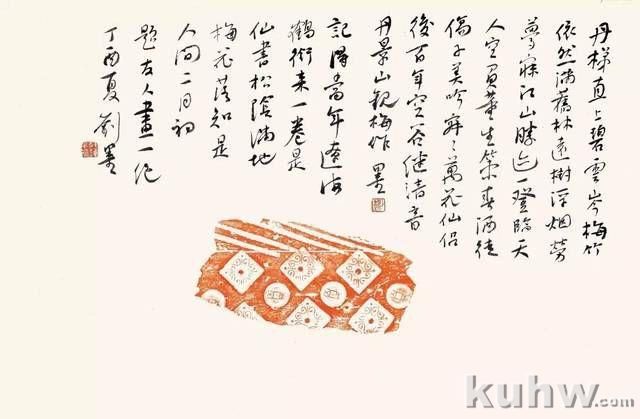 丹梯直上碧雲岑梅竹
依然滿舊林遠樹浮烟勞
夢寐江山勝迹一登臨天
人空董生策春酒徒
傷子美吟寂〻萬花仙侶
後百年空谷繼清音
丹景山觀梅作 墨
記得當年遼海
鶴銜來一卷是
仙書松陰滿地
梅花落知是
人間二月初
題友人畫一絕
丁酉夏 劉墨
kuhw.com